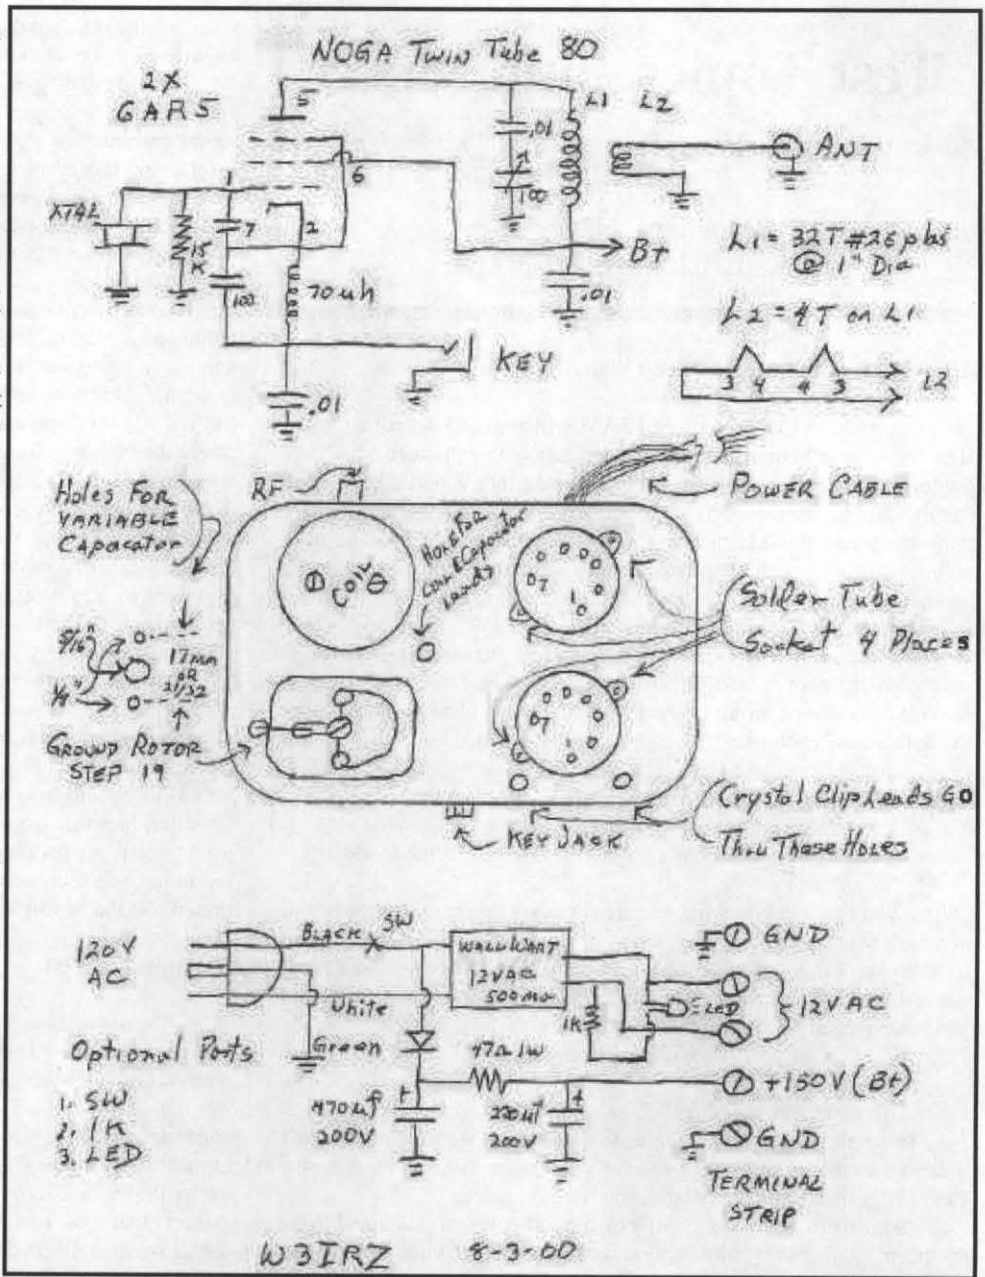 NOGA Twin Tube 80
2X
6AR5
5
6
1
2
XTAL
15
K
7
100
70 uh
.01
.01
100
L1
L2
ANT
B+
.01
KEY
L1 = 32T #26 pbs
@ 1" Dia
L2 = 4T on L1
3 4 4 3
L2
Holes For
VARIABLE
Capacator
RF
Hole For
Capacator
Leads
POWER CABLE
7
1
7
1
Solder Tube
Socket 4 Places
5/16"
17mm
OR
21/32
1/8"
GROUND ROTOR
STEP 19
KEY JACK
Crystal Clip Leads GO
Thru These Holes
120V
AC
BLACK
SW
White
Green
WALL WART
12VAC
500ma
1K
LED
GND
12VAC
47Ω 1W
+150V (B+)
+
470uf
200V
+
220uf
200V
GND
TERMINAL
STRIP
Optional Parts
1. SW
2. 1K
3. LED
W3IRZ 8-3-00